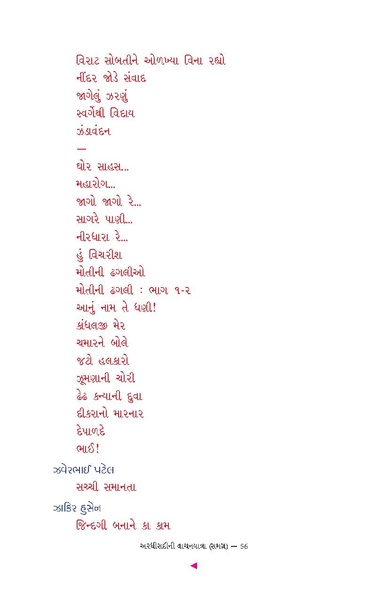 વિરાટ સોબતીને ઓળખ્યા વિના રહ્યો
નીંદર જોડે સંવાદ
જાગેલું ઝરણું
સ્વર્ગેથી વિદાય
ઝંડાવંદન
—
ઘોર સાહસ...
મહારોગ...
જાગો જાગો રે...
સાગરે પાણી...
નીરધારા રે...
હું વિચરીશ
મોતીની ઢગલીઓ
મોતીની ઢગલી : ભાગ ૧-૨
આનું નામ તે ધણી!
કાંધલજી મેર
ચમારને બોલે
જટો હલકારો
ઝૂમણાની ચોરી
ઢેઢ કન્યાની દુવા
દીકરાનો મારનાર
દેપાળદે
ભાઈ!
ઝવેરભાઈ પટેલ
સચ્ચી સમાનતા
ઝાકિર હુસેન
જિન્દગી બનાને કા કામ
અરધીસદીની વાચનયાત્રા (સમગ્ર) — 56